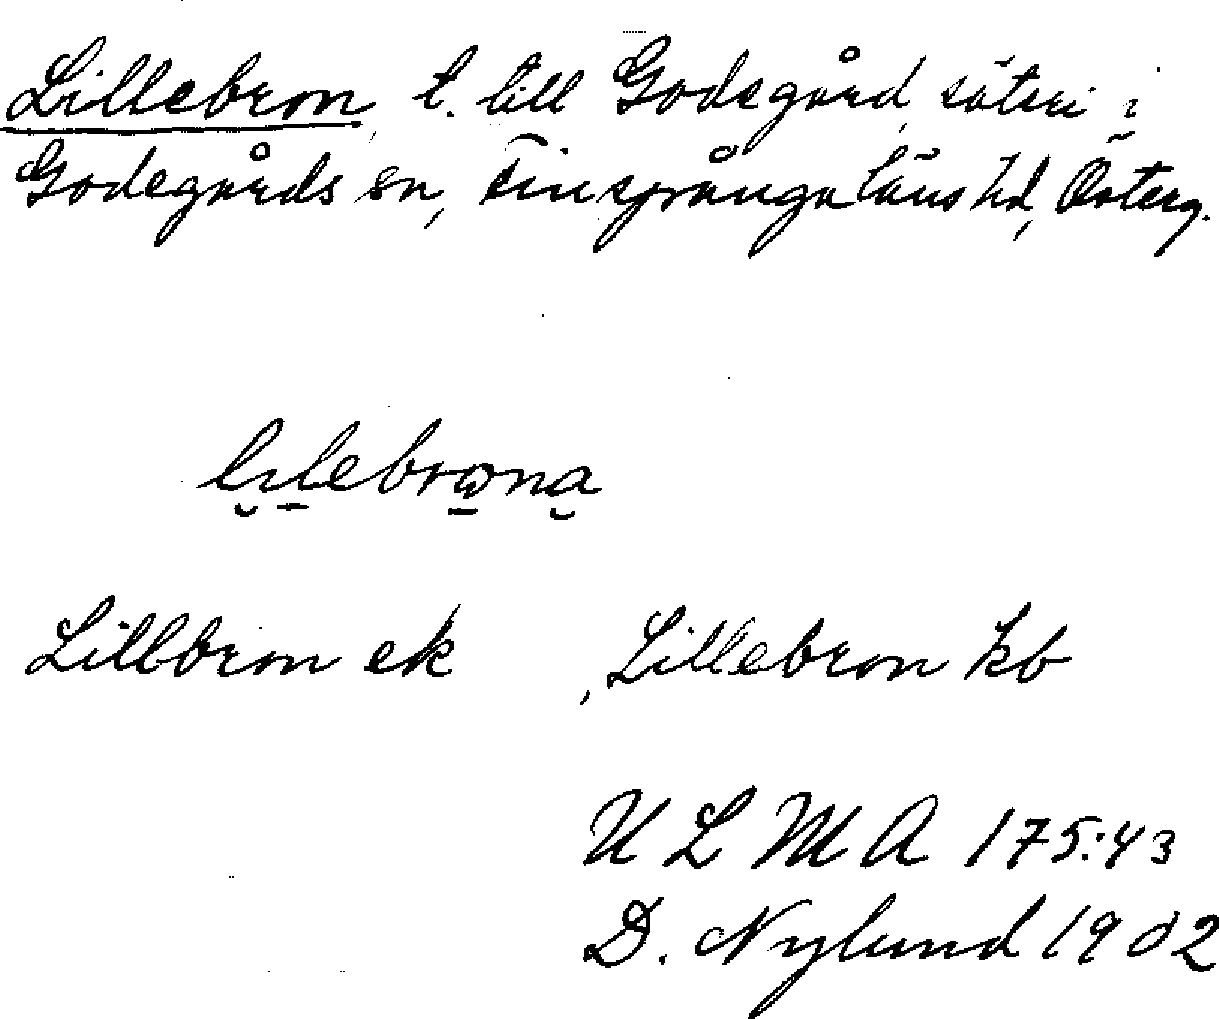 Lillebron, t. till Godegård, säteri i
Godegårds sn, Finspånga läns hd, Österg.
Lillbron ek , Lillebron kb
U L M A 175:43
D. Nylund 1902